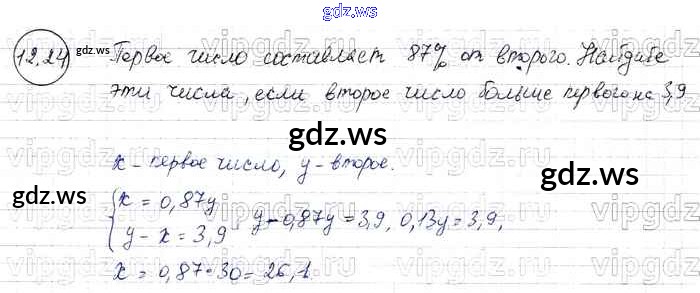 gdz.ws
12.24 gdz.ws Первое число составляет 87% от второго. Найдите
эти числа, если второе число больше первого на 3,9
gdz.ws
x - первое число, y - второе.
gdz.ws gdz.ws
{ x = 0,87y
y - x = 3,9 y - 0,87y = 3,9, 0,13y = 3,9,
x = 0,87·30 = 26,1.
gdz.ws